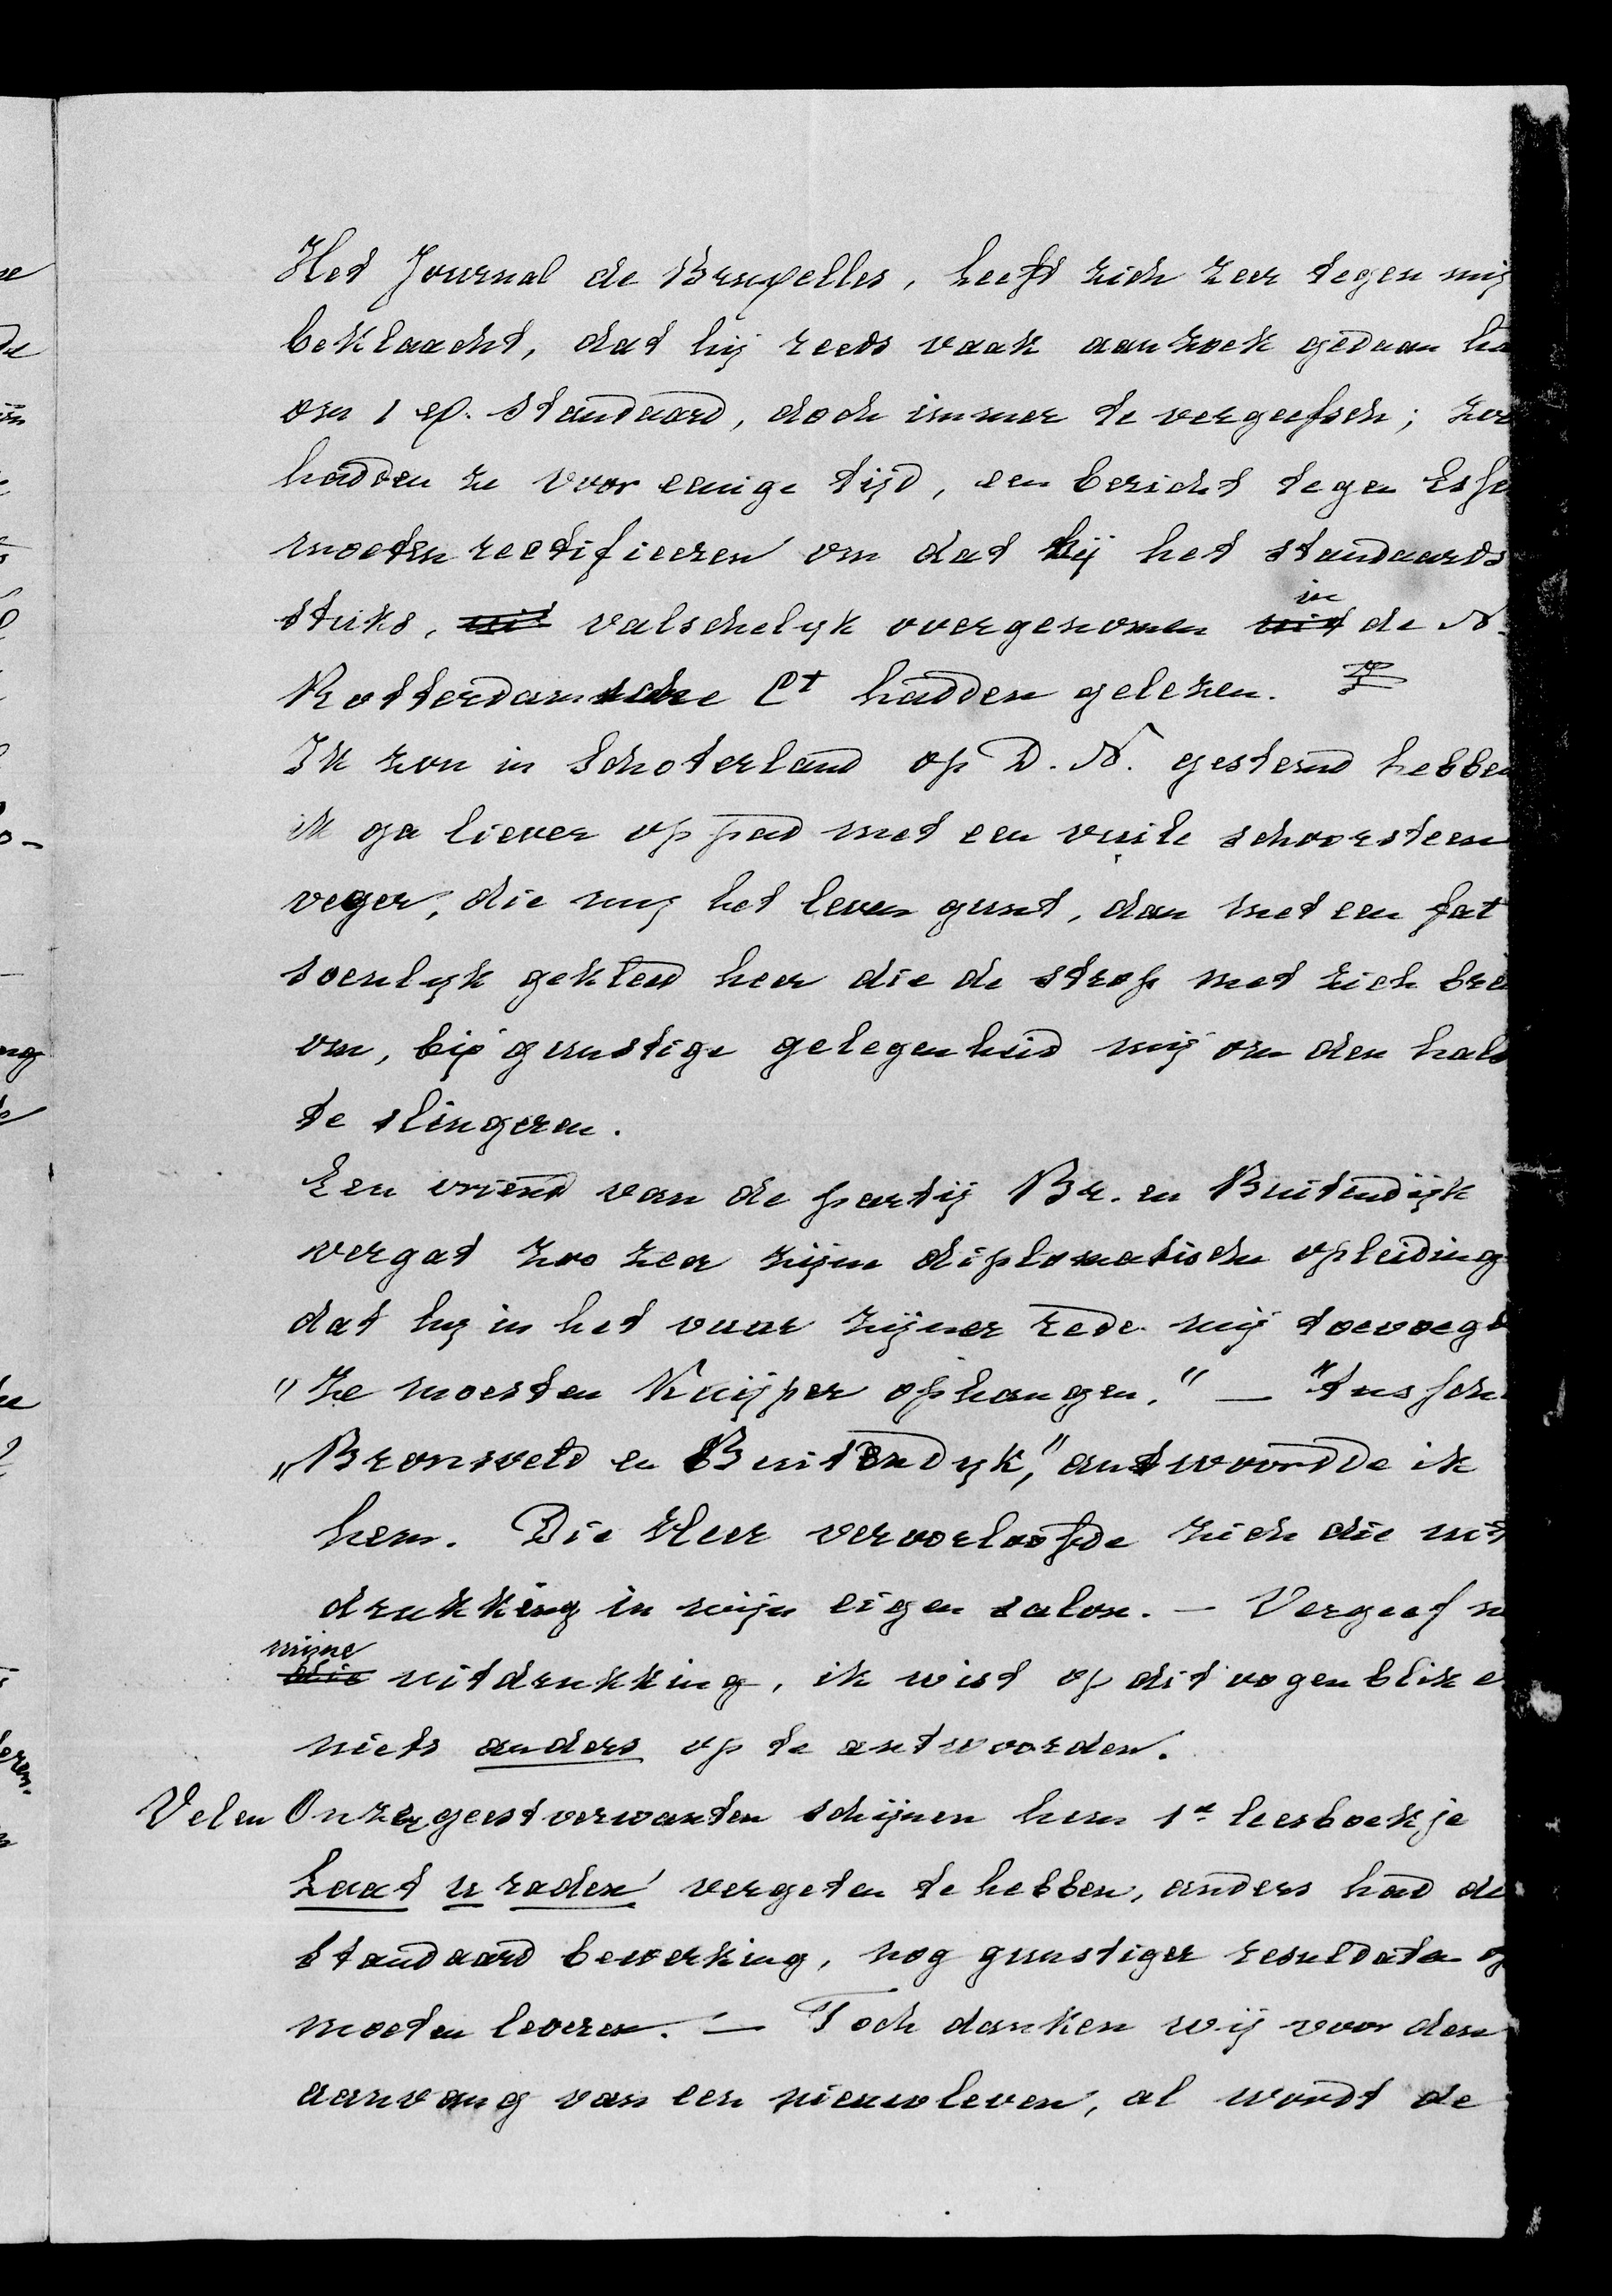 Het Journal de Bruxelles, heeft zich zeer tegen mij
beklaacht, dat hij reeds vaak aanzoek gedaan ha
om 1 ex. Standaard, doch immer te vergeefsch; zoo
hadden ze voor eenige tijd, een bericht tegen
moeten rectifieeren om dat hij het standaards
stuks, uit valschelijk overgenomen uit in de N.
Rotterdamsche Ct hadden gelezen.
Ik zou in Schoterland op D. N. gestemd hebben
ik ga liever op pad met een vuile schoorsteen
veger, die mij het leven gunt, dan met een fat
soenlijk gekleed heer die de strop met zich bre
om, bij gunstige gelegenheid mij om den hals
te slingeren.
Een vriend van de partij Br. en Buitendijk
vergat zoo zeer zijne diplomatische opleiding
dat hij in het vuur zijner rede mij toevoegd
"ze moesten Kuijper ophangen." — "tusschen
„Bronsveld en Buitendijk," antwoordde ik
hem. Die Heer veroorloofde zich die uit
drukking in mijn eigen salon. — Vergeef m
mijne
die uitdrukking, ik wist op dit oogenblik e
niets anders op te antwoorden.
Velen Onzer geestverwanten schijnen hun 1e leesboekje
Laat u raden vergeten te hebben, anders had de
Standaard bewerking, nog gunstiger resultaten op
moeten leveren. — Toch danken wij voor den
aanvang van een nieuw leven, al wordt de